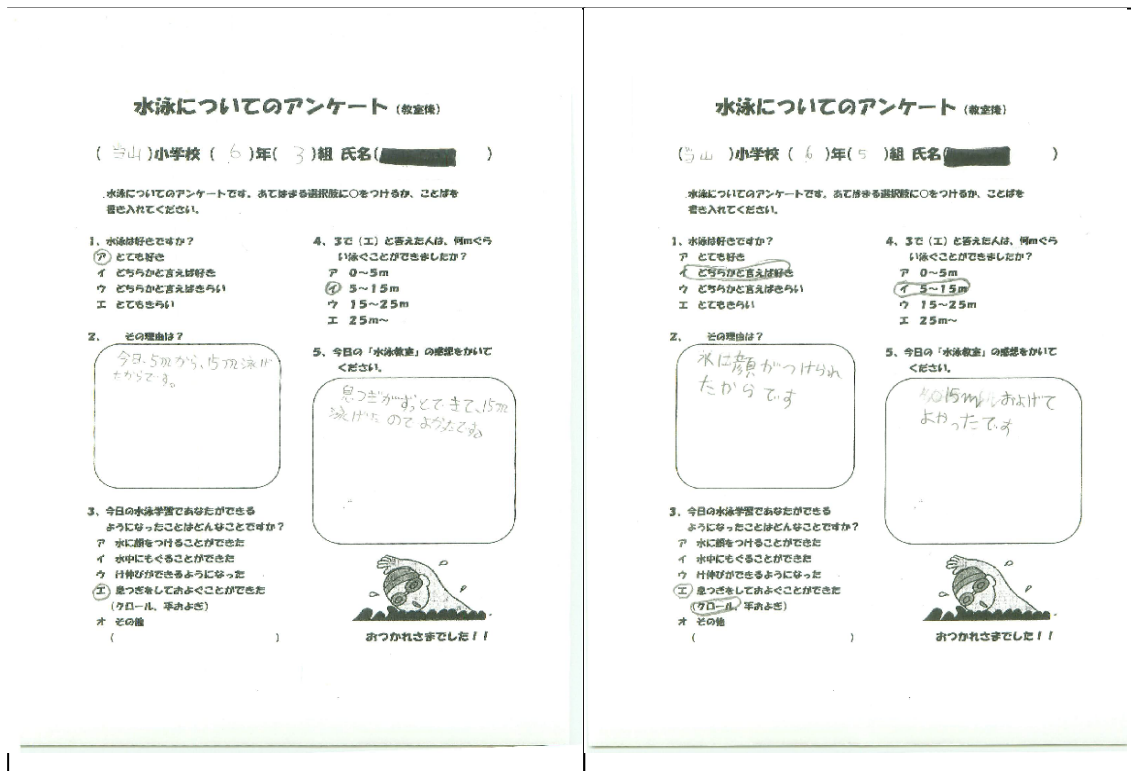 水泳についてのアンケート（教室後）
（ 当山 ）小学校（ 6 ）年（ 3 ）組 氏名（ ）
水泳についてのアンケートです。あてはまる選択肢に○をつけるか、ことばを
書き入れてください。
1、水泳は好きですか？
ア とても好き
イ どちらかと言えば好き
ウ どちらかと言えばきらい
エ とてもきらい
2、 その理由は？
今日、5mから、15m泳げ
たからです。
3、今日の水泳学習であなたができる
ようになったことはどんなことですか？
ア 水に顔をつけることができた
イ 水中にもぐることができた
ウ け伸びができるようになった
エ 息つぎをしておよぐことができた
（クロール、平およぎ）
オ その他
（ ）
4、3で（エ）と答えた人は、何mぐら
い泳ぐことができましたか？
ア 0～5m
イ 5～15m
ウ 15～25m
エ 25m～
5、今日の「水泳教室」の感想をかいて
ください。
息つぎがずっとできて、15m
泳げたのでよかったです。
おつかれさまでした！！
水泳についてのアンケート（教室後）
（ 当山 ）小学校（ 6 ）年（ 5 ）組 氏名（ ）
水泳についてのアンケートです。あてはまる選択肢に○をつけるか、ことばを
書き入れてください。
1、水泳は好きですか？
ア とても好き
イ どちらかと言えば好き
ウ どちらかと言えばきらい
エ とてもきらい
2、 その理由は？
水に顔がつけられ
たからです
3、今日の水泳学習であなたができる
ようになったことはどんなことですか？
ア 水に顔をつけることができた
イ 水中にもぐることができた
ウ け伸びができるようになった
エ 息つぎをしておよぐことができた
（クロール、平およぎ）
オ その他
（ ）
4、3で（エ）と答えた人は、何mぐら
い泳ぐことができましたか？
ア 0～5m
イ 5～15m
ウ 15～25m
エ 25m～
5、今日の「水泳教室」の感想をかいて
ください。
15mおよげて
よかったです
おつかれさまでした！！